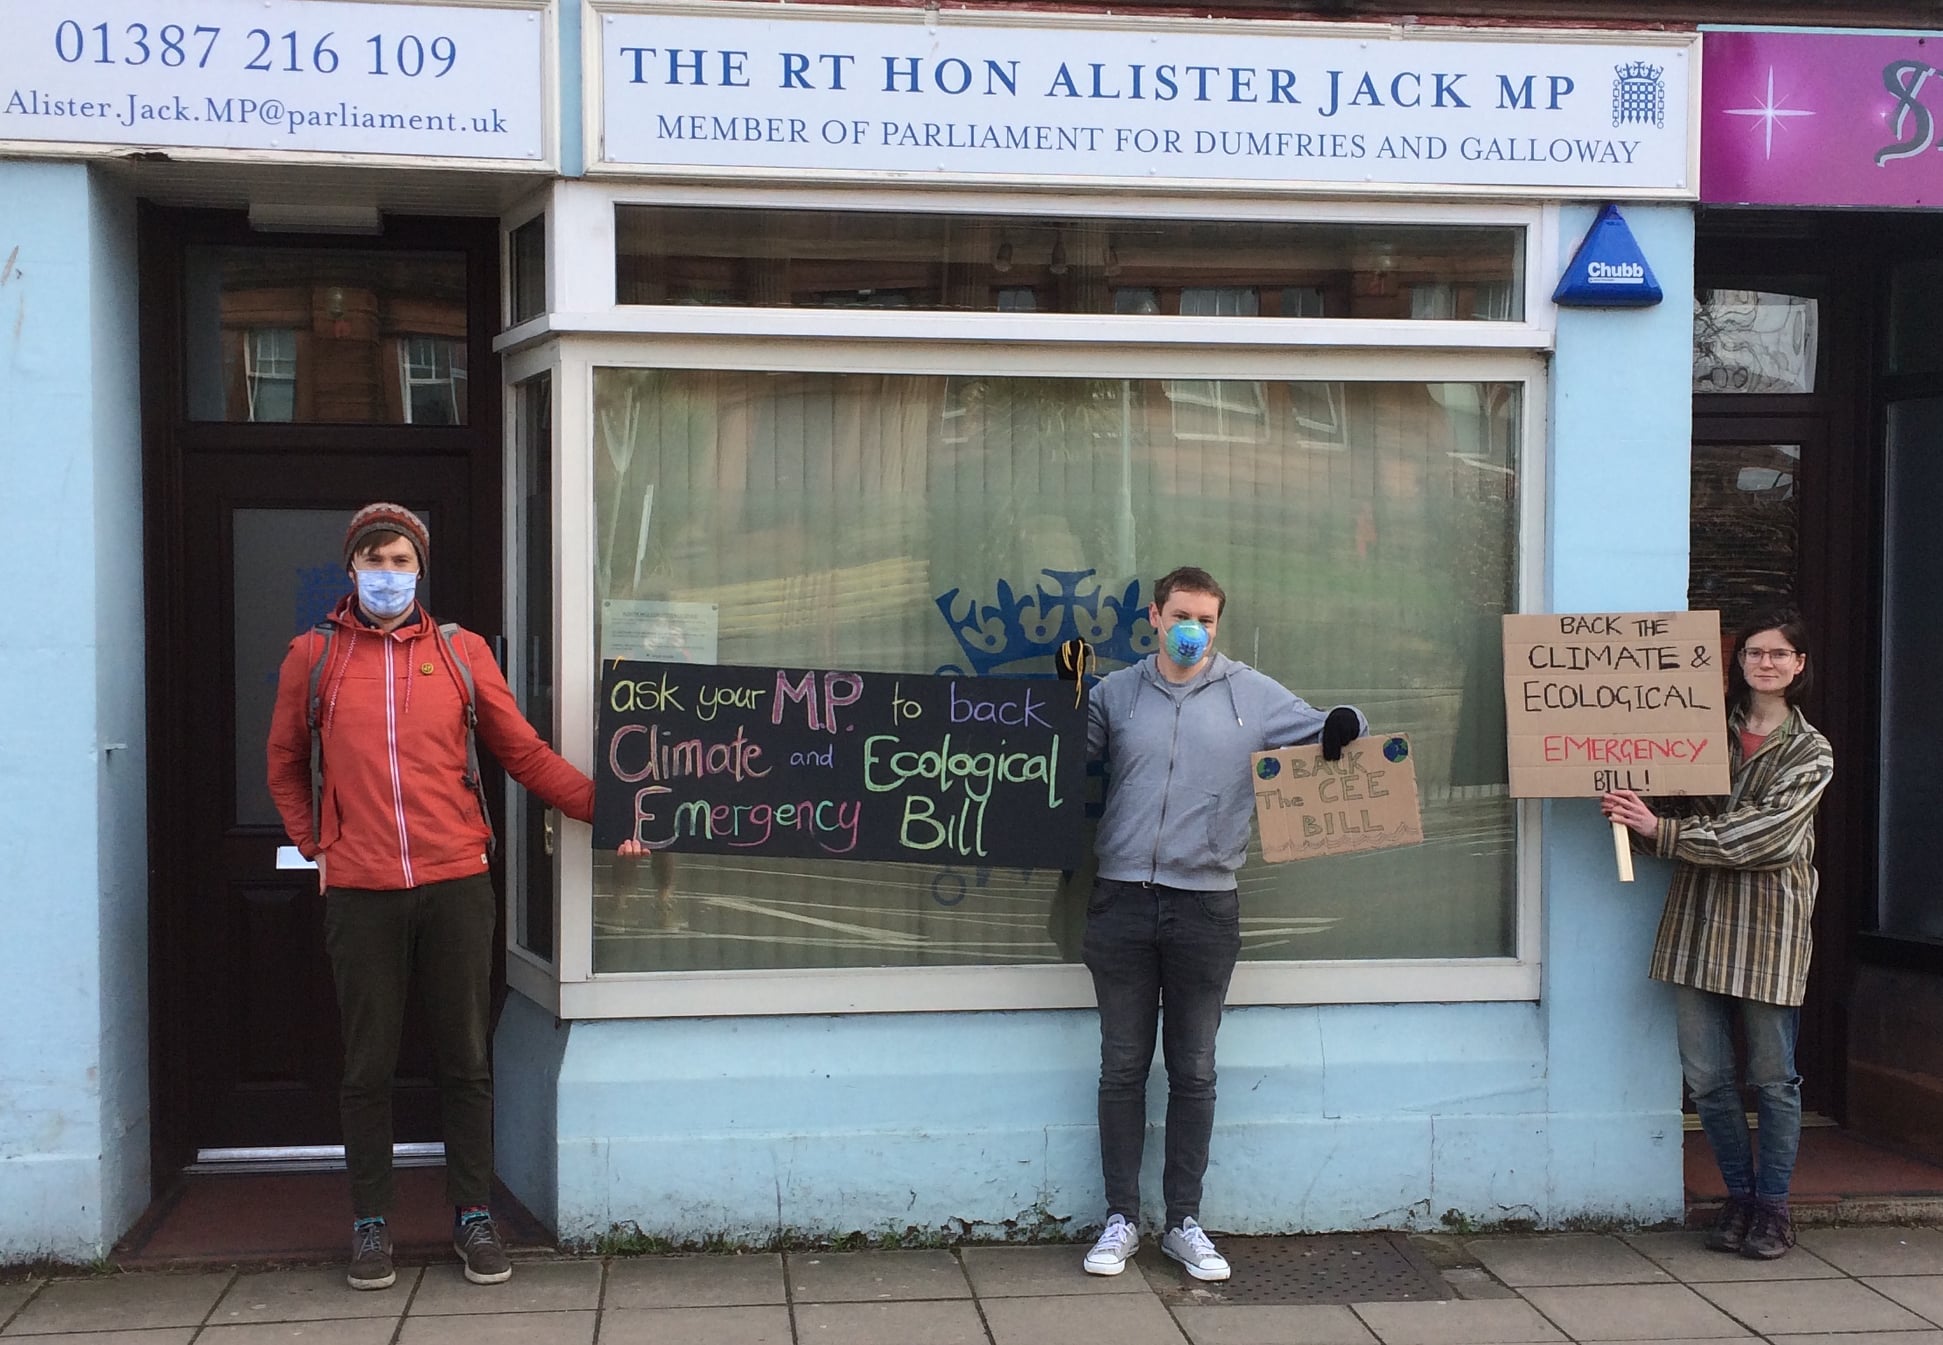 01387 216 109
Alister.Jack.MP@parliament.uk
THE RT HON ALISTER JACK MP
MEMBER OF PARLIAMENT FOR DUMFRIES AND GALLOWAY
Chubb
ask your M.P. to back
Climate and Ecological
Emergency Bill
BACK
The CEE
BILL
BACK THE
CLIMATE &
ECOLOGICAL
EMERGENCY
BILL!